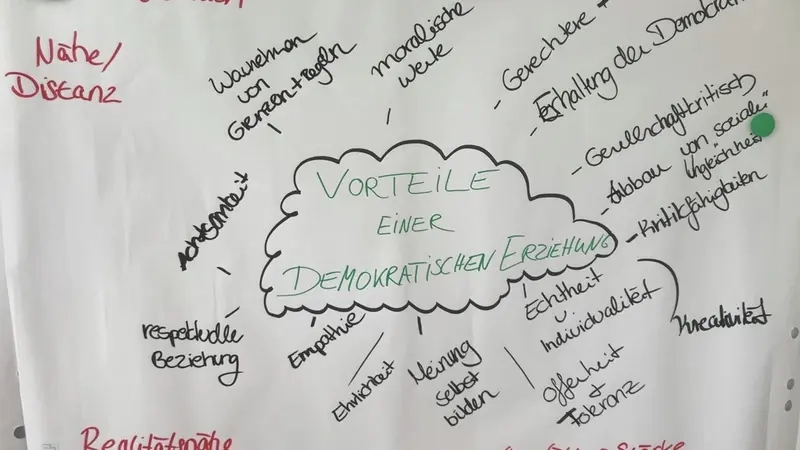 Nähe/
Distanz
Wahrnehmen
von
Grenzen + Regeln
moralische
Werte
- Gerechtere +
- Erhaltung der Demokra
- Gesellschaftkritisch
- Abbau von sozialer
Ungleichheit
- Kritikfähigkeiten
Kreativität
VORTEILE
EINER
DEMOKRATISCHEN ERZIEHUNG
Achtsamkeit
respektvolle
Beziehung
Empathie
Ehrlichkeit
Meinung
selbst
bilden
Echtheit
u.
Individualität
Offenheit
+
Toleranz
Realitätsnähe